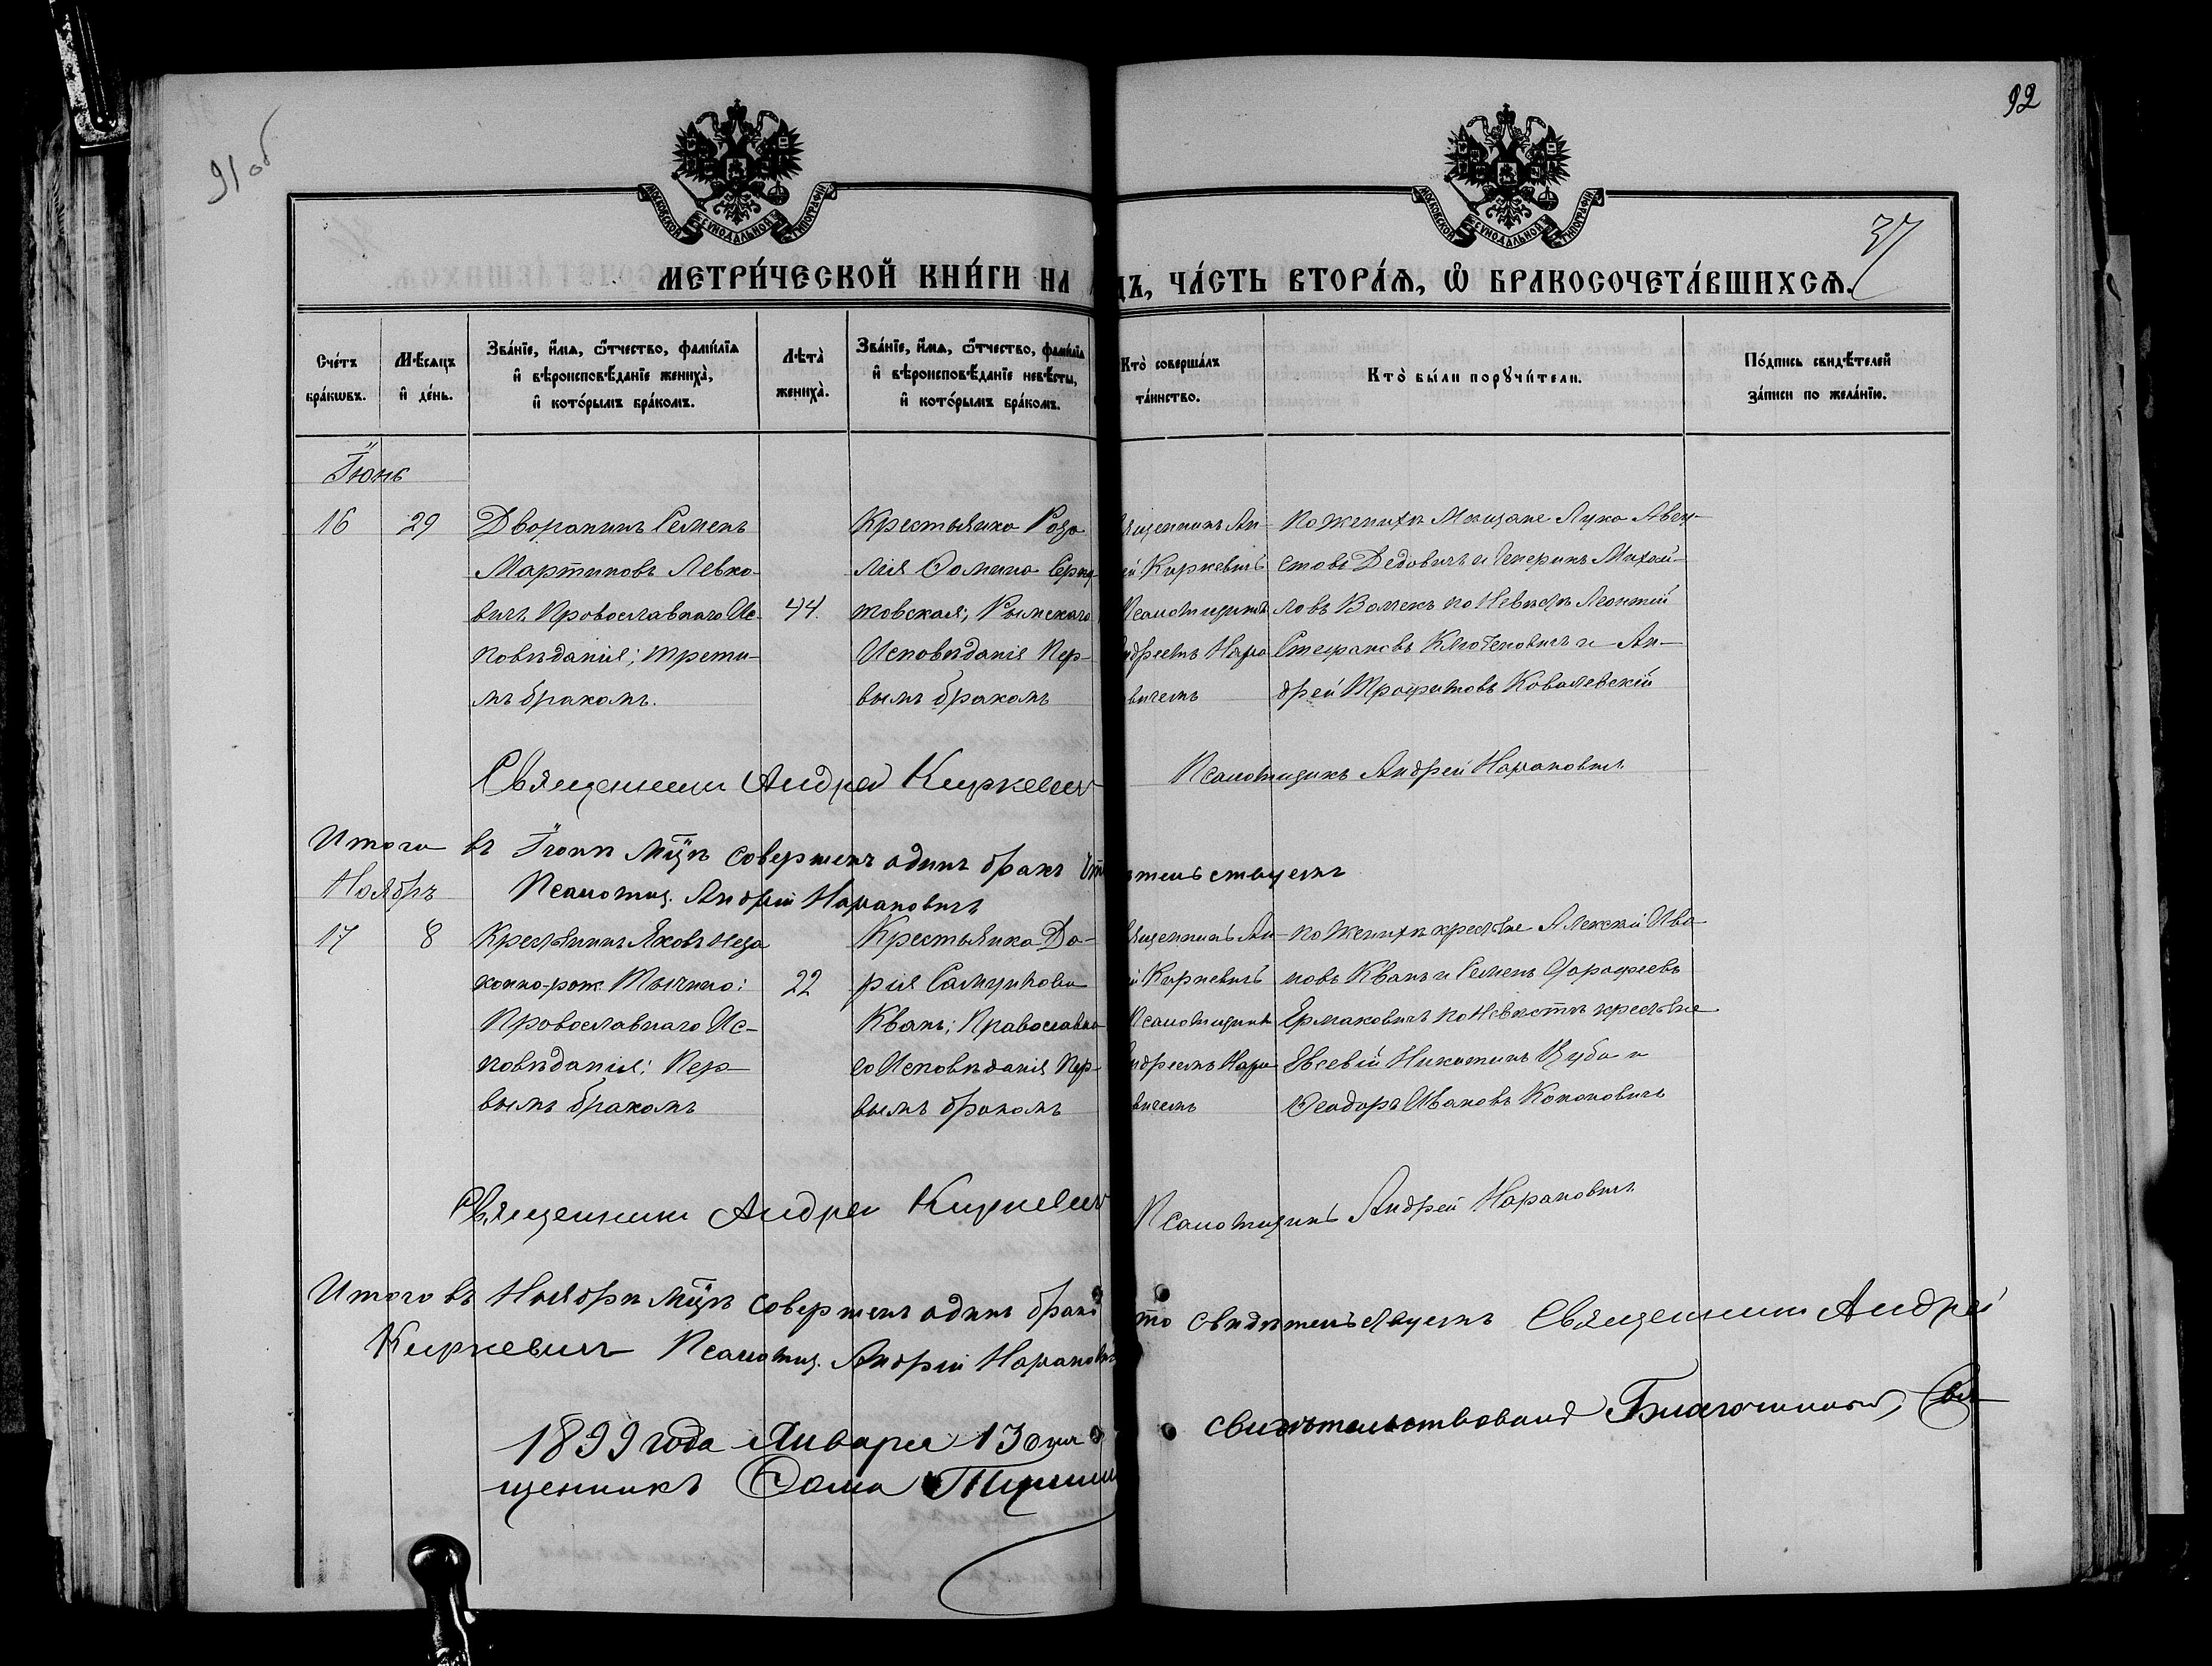 91 об
92
МОСКОВСКОЙ СѴНОДАЛЬНОЙ ТИПОГРАФІИ
МОСКОВСКОЙ СѴНОДАЛЬНОЙ ТИПОГРАФІИ
37
МЕТРИ́ЧЕСКОЙ КНИ́ГИ НА
ДЪ, ЧА́СТЬ ВТОРА́Ѧ, Ѽ БРАКОСОЧЕТА́ВШИХСѦ.
Сче́тъ бра́кѡвъ.
Мѣ́сѧцъ и҆ де́нь.
Зва́нїе, и҆́мѧ, ѻ҆́тчество, фамѝлїѧ и҆ вѣроисповѣ́данїе жениха̀, и҆ кото́рымъ бра́комъ.
Лѣта̀ жениха̀.
Зва́нїе, и҆́мѧ, ѻ҆́тчество, фамѝлїѧ и҆ вѣроисповѣ́данїе невѣ́сты, и҆ кото́рымъ бра́комъ.
Кто̀ соверша́лъ та́инство.
Кто̀ бы́ли порꙋчи́тели.
По́дпись свидѣ́телей за́писи по жела́нїю.
Іюнь
16
29
Дворянинъ Семенъ
Мартиновъ Левко-
вичъ Провославнаго Ис-
повѣданія; трети-
мъ бракомъ.
44.
Крестьянка Роза
лія Фомина
товская; Римскаго
Исповѣданія Пер-
вымъ бракомъ
ященникъ Ан-
ій Киркевичъ
Псаломщикъ
ндреемъ Нара
вичемъ
По женихѣ Мещане Лука Авгу-
стовъ Дедовичъ и Михай-
ловъ Волчекъ по Невѣстѣ Леонтій
Стефановъ Ключеновичъ и Ан-
дрей Трофимовъ Ковалевскій
Священникъ Андрей Киркевич
Псаломщикъ Андрей Нарановичъ
Итого въ Іюнѣ мцѣ совершенъ одинъ бракъ
тельствуемъ
Псаломщ. Андрій Нарановичъ
Ноябрь
17
8
Крестьянинъ Яковъ неза
конно-рож. Тычино:
Провославнаго Ис-
повѣданія; Пер-
вымъ бракомъ
22
Крестьянка До-
рія Самуилова
Квань; Православна
го Исповѣданія Пер-
вымъ бракомъ
ященникъ Ан-
й Киркевичъ
Псаломщикъ
ндреемъ Нара
вичемъ
по Женихѣ крестьяне Алексѣй Ива
новъ Квань и Семенъ Дорофеевъ
Ермаковичъ по Невѣстѣ крестьяне
Евсевій Никитинъ Цуба и
Феодоръ Ивановъ Кононовичъ
Священникъ Андрей Киркевич
Псаломщикъ Андрей Нарановичъ
Итого въ Ноябрѣ мцѣ совершенъ одинъ бракъ
то свидѣтельствуемъ Священникъ Андрей
Киркевичъ Псаломщ. Андрій Нарановичъ
1899 года Января 13 дня
свидѣтельствовалъ Благочинный, Свя-
щенникъ Фома